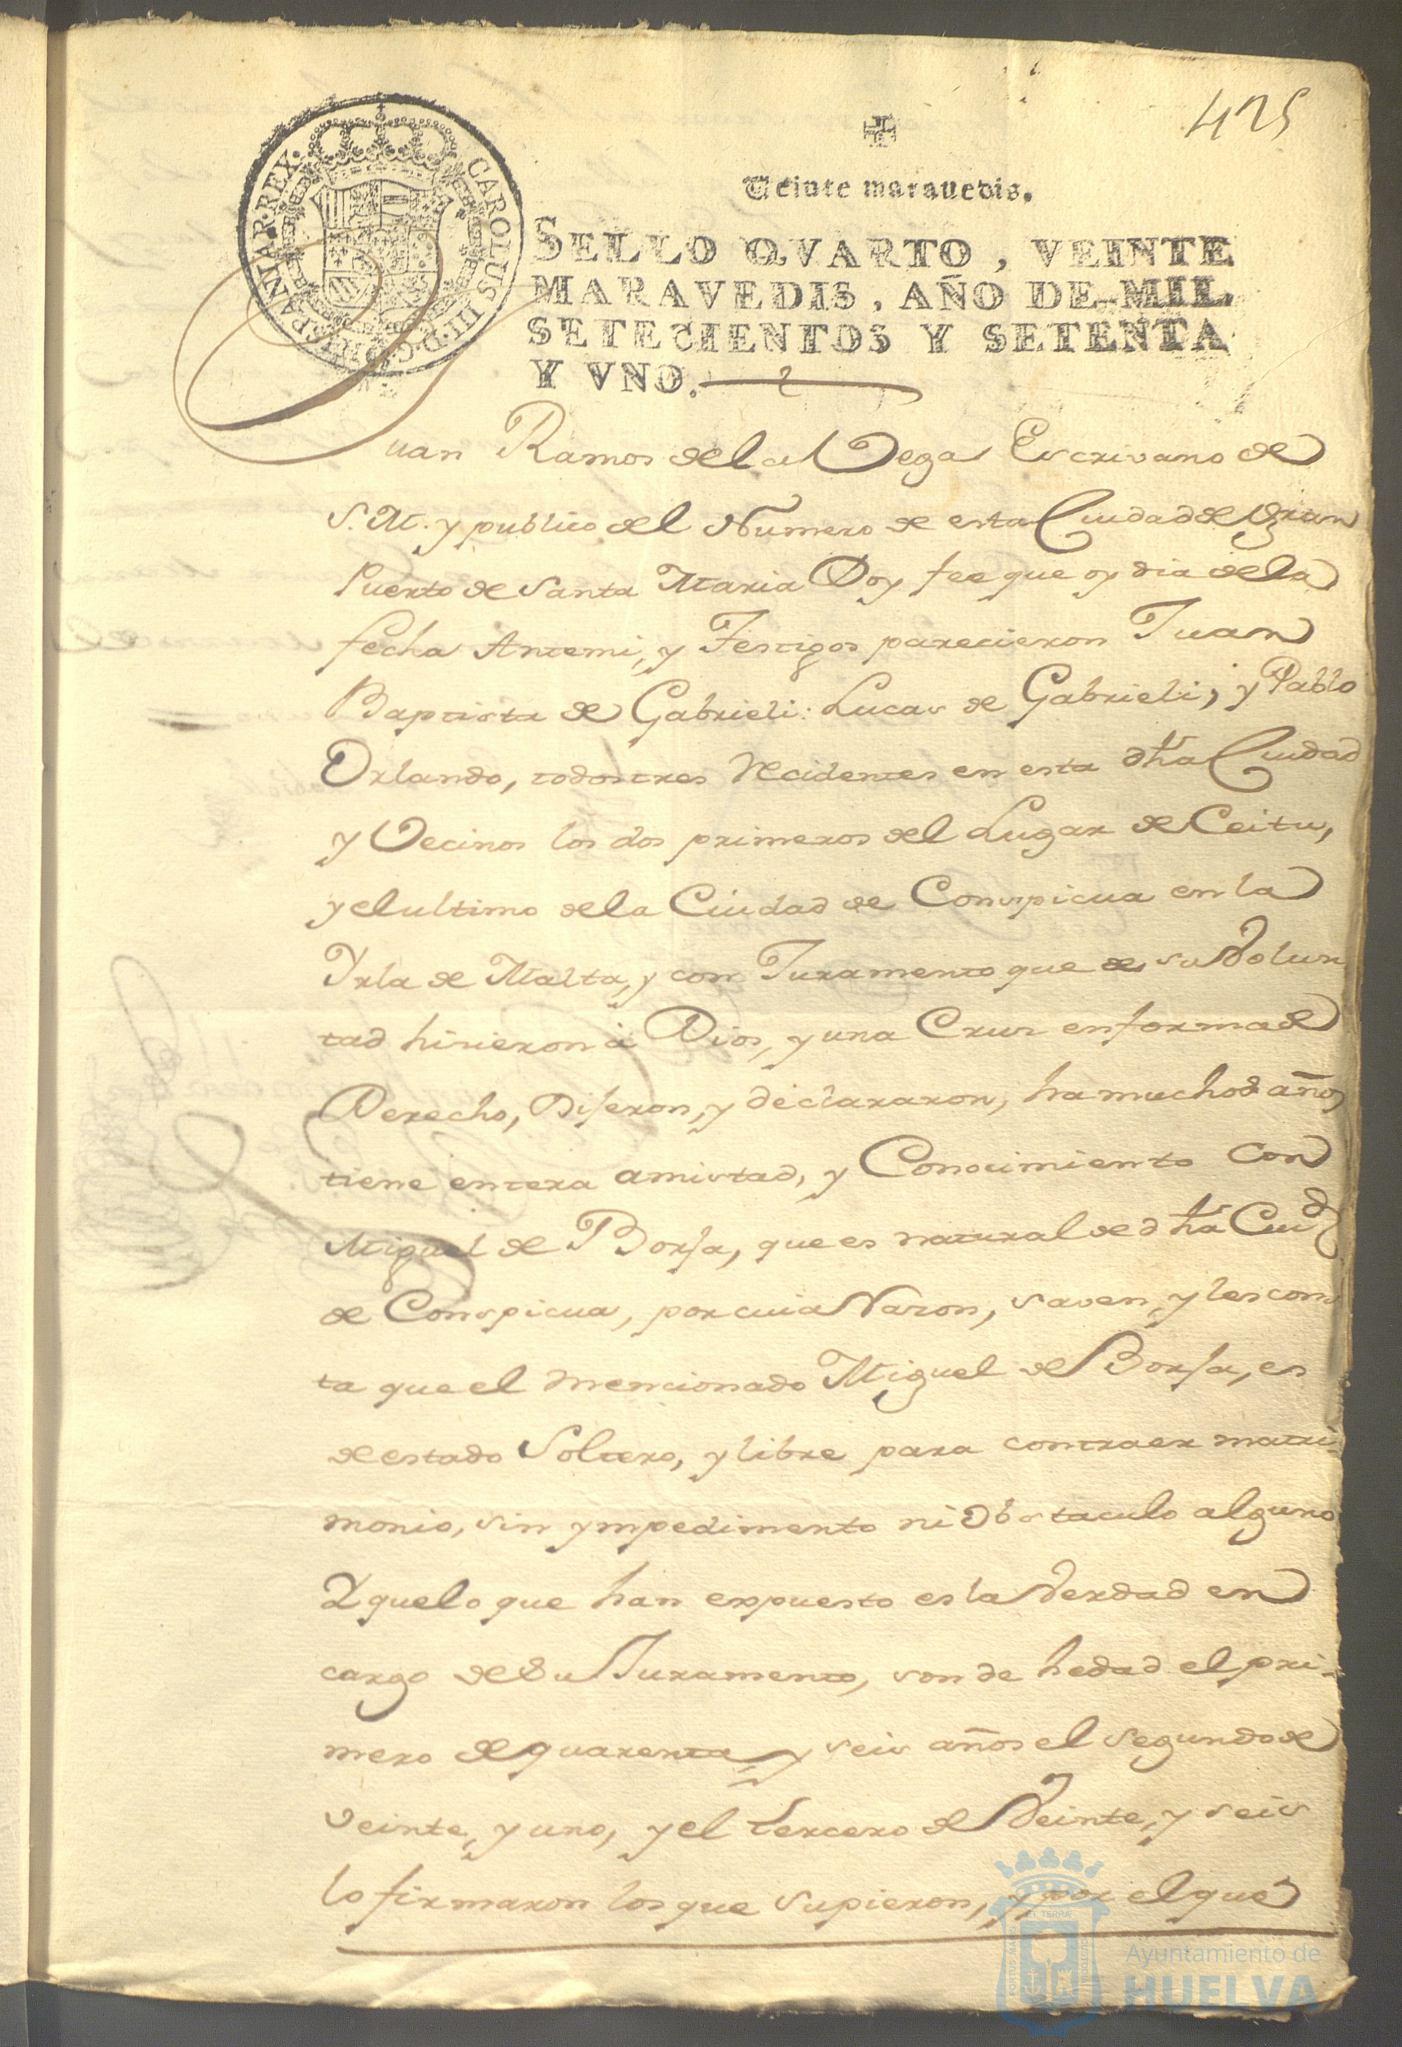 425
Veinte maravedis.
CAROLUS III. D. G. HISPANIAR. REX.
SELLO QVARTO, VEINTE
MARAVEDIS, AÑO DE MIL
SETECIENTOS Y SETENTA
Y VNO.
Juan Ramos de la Vega Escrivano de
S. M. y publico del Numero de esta Ciudad de Gran
Puerto de Santa Maria Doy fee que oy dia de la
fecha Antemi, y Testigos parecieron Juan
Baptista de Gabrieli: Lucas de Gabrieli, y Pablo
Orlando, todos tres Recidentes en esta dha Ciudad
y Vecinos los dos primeros del Lugar de Ceitu,
y el ultimo de la Ciudad de Conspicua en la
Ysla de Malta, y con Juramento que de su Volun
tad hisieron à Dios, y una Crus en forma de
Derecho, Diseron, y declararon, ha muchos años
tiene entera amistad, y Conocimiento con
Miguel de Borja, que es natural de dha Ciud
de Conspicua, por cuia Razon, saven, y les cons
ta que el mencionado Miguel de Borja, es
de estado Soltero, y libre para contraer matri-
monio, sin ympedimento ni Obstaculo alguno
Y que lo que han expuesto es la Verdad en
cargo de Su Juramento, son de hedad el pri-
mero de quarenta, y seis años el segundo de
veinte, y uno, y el tercero de Veinte, y seis
lo firmaron los que supieron, y por el que
Ayuntamiento de
HUELVA